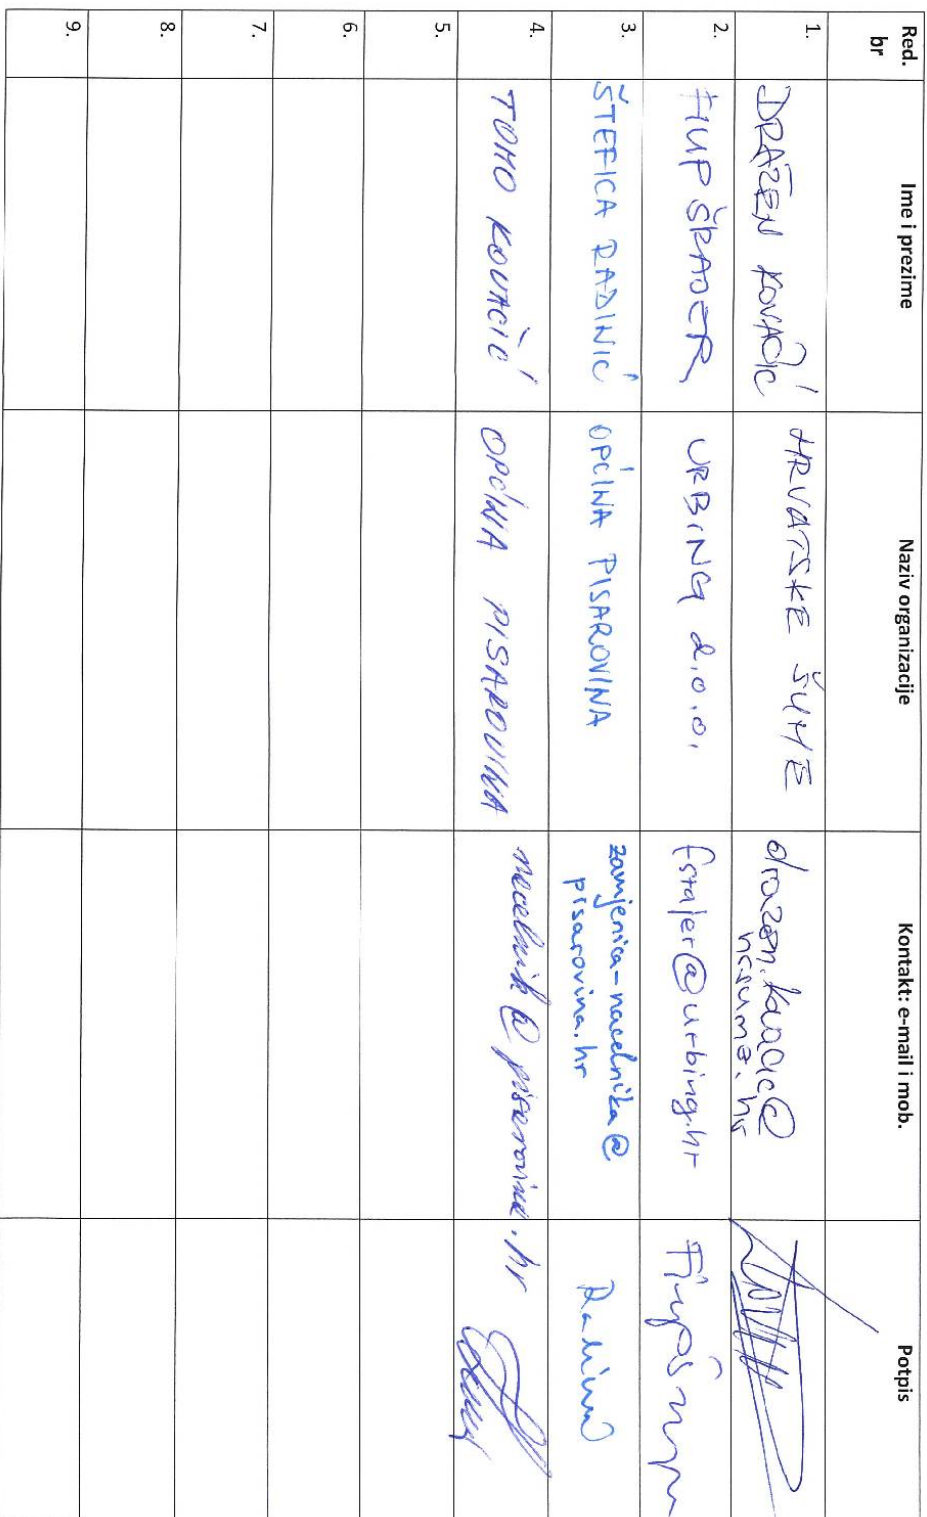 Red. br Ime i prezime Naziv organizacije Kontakt: e-mail i mob. Potpis
1. DRAŽEN KOVAČIĆ HRVATSKE ŠUME drazen.kovacic@
hrsume.hr
2. FILIP URBING d.o.o. fstajer@urbing.hr
3. ŠTEFICA RADINIĆ OPĆINA PISAROVINA zamjenica-nacelnika@
pisarovina.hr Radinić
4. TOMO KOVAČIĆ OPĆINA PISAROVINA nacelnik@pisarovina.hr
5.
6.
7.
8.
9.